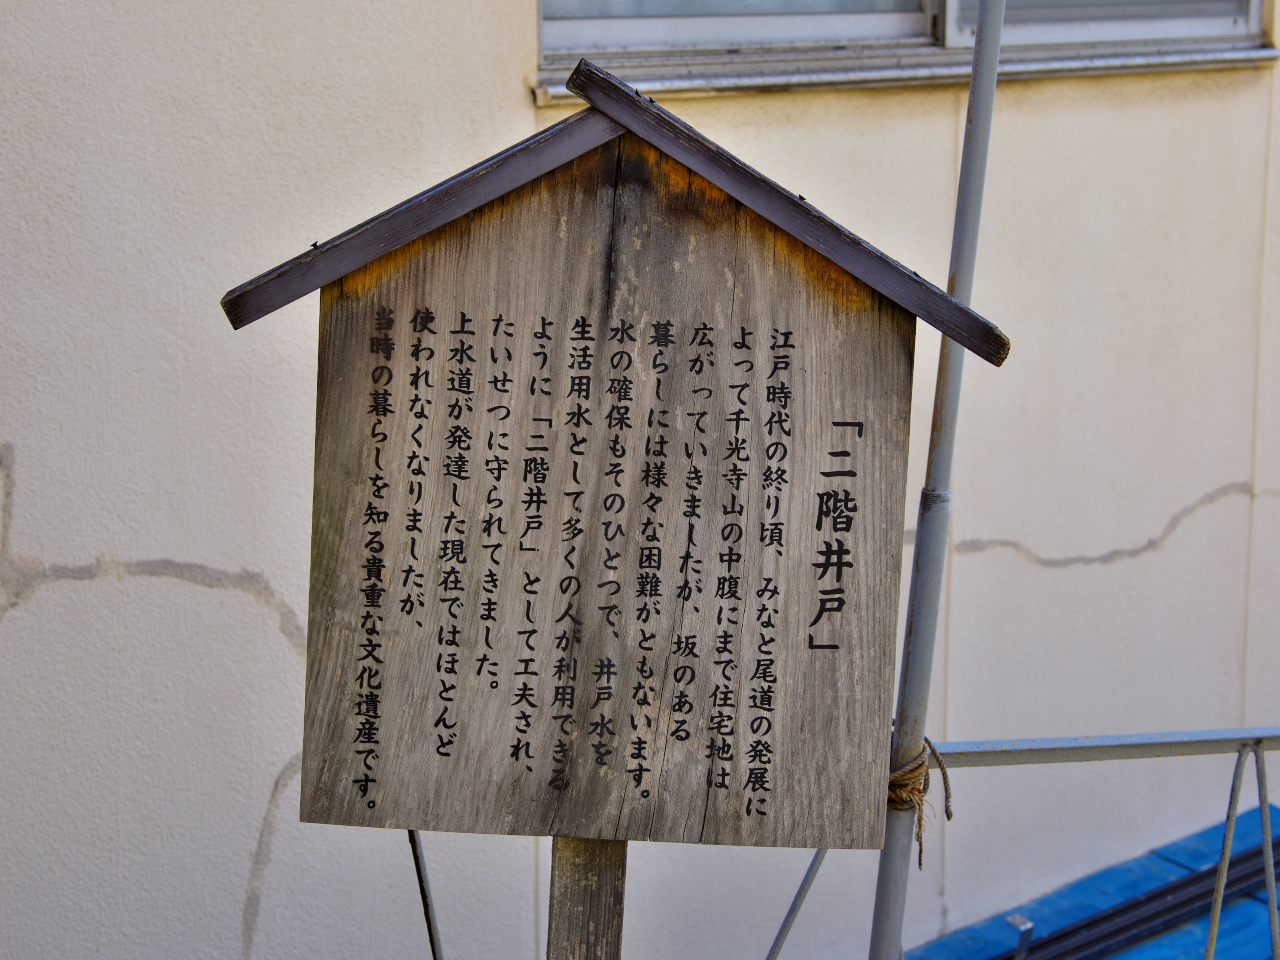 「二階井戸」
江戸時代の終り頃、みなと尾道の発展に
よって千光寺山の中腹にまで住宅地は
広がっていきましたが、坂のある
暮らしには様々な困難がともないます。
水の確保もそのひとつで、井戸水を
生活用水として多くの人が利用できる
ように「二階井戸」として工夫され、
たいせつに守られてきました。
上水道が発達した現在ではほとんど
使われなくなりましたが、
当時の暮らしを知る貴重な文化遺産です。